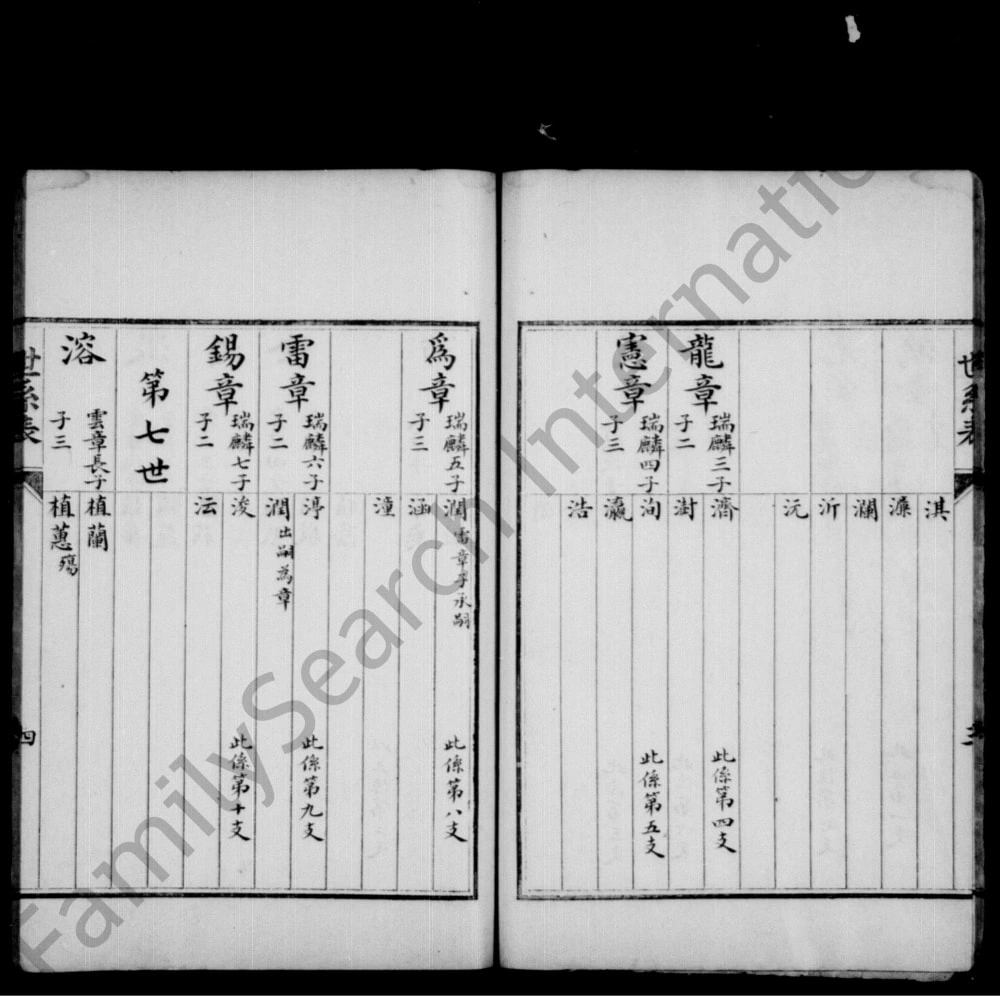 世系表
淇
濂
瀾
沂
沅
龍章 瑞麟三子 子二
濟 此係第四支
澍
憲章 瑞麟四子 子三
洵 此係第五支
瀛
浩
為章 瑞麟五子 子三
潤 雷章子承嗣 此係第八支
涵
潼
雷章 瑞麟六子 子二
渟 此係第九支
潤 出嗣為章
錫章 瑞麟七子 子二
浚 此係第十支
沄
第七世
溶 雲章長子 子三
植蘭
植蕙 殤
世系表
四
FamilySearch International